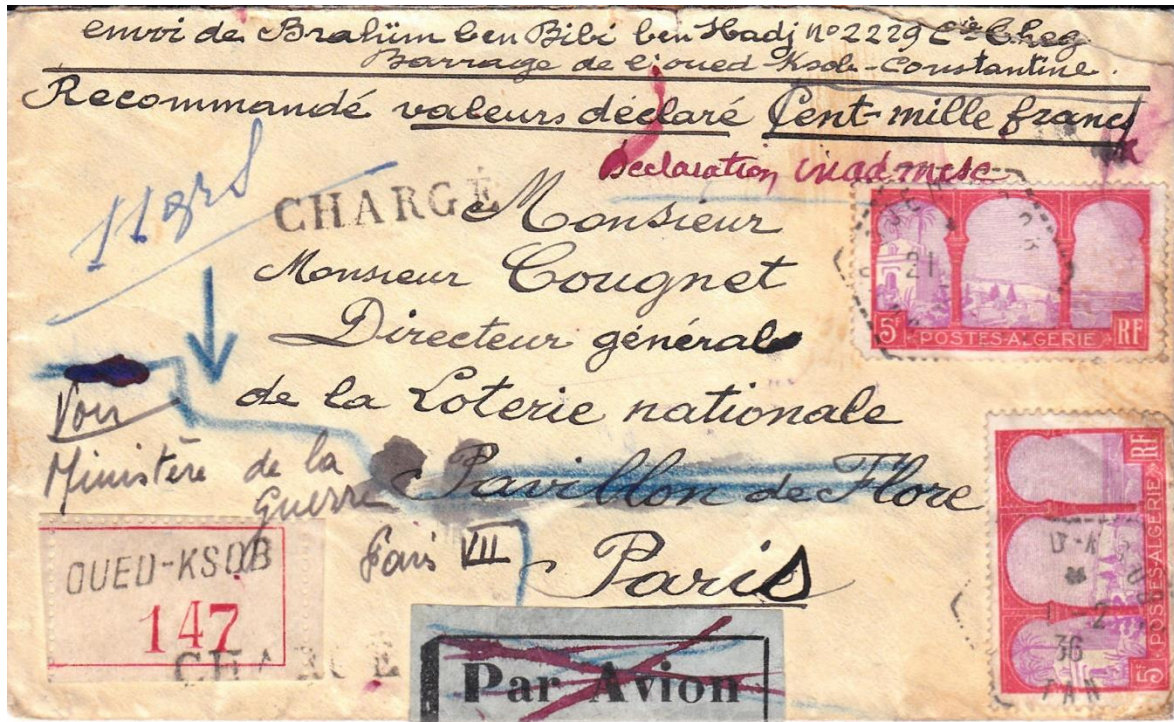 envoi de Brahiim ben Bibi ben Hadj nº 2229 Cie Cheg
Barrage de l'oued-Ksob-Constantine.
Recommandé valeurs déclaré Cent-mille francs
Déclaration inadmise
CHARGÉ
Monsieur
Monsieur Cougnet
Directeur général
de la Loterie nationale
Pavillon de Flore
Paris
Voir
Ministère de la
Guerre
Paris VII
OUED-KSOB
147
CHARGE
Par Avion
5F POSTES-ALGERIE RF
21
5F POSTES-ALGERIE RF
1-2
36